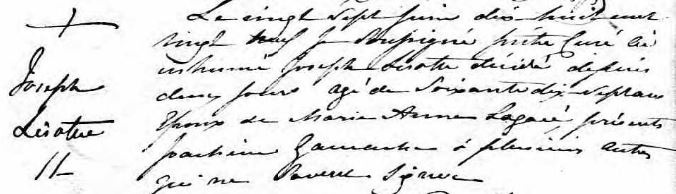 Le vingt Sept juin dix huit cent
vingt neuf Je Soussigné prêtre Curé ai
inhumé Joseph Lisotte décédé depuis
deux jours agé de Soixante dix Sept ans
Epoux de Marie Anne Lagacé présents
Joachim Gamache & plusieurs autres
qui ne Savent Signer
Joseph
Lisotte